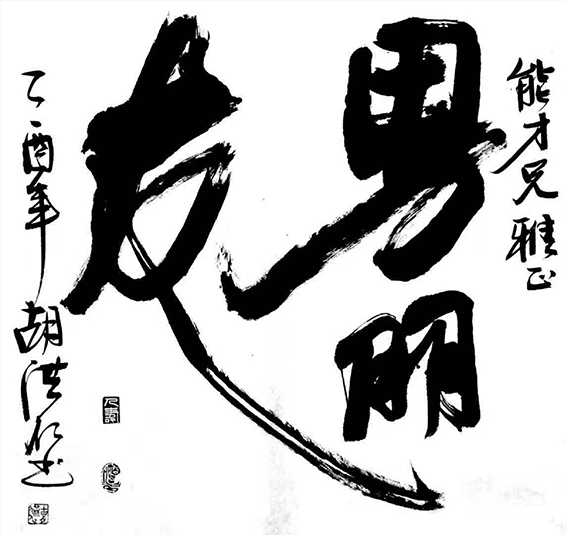 能才兄雅正
男朋
友
乙酉年胡洪仁书